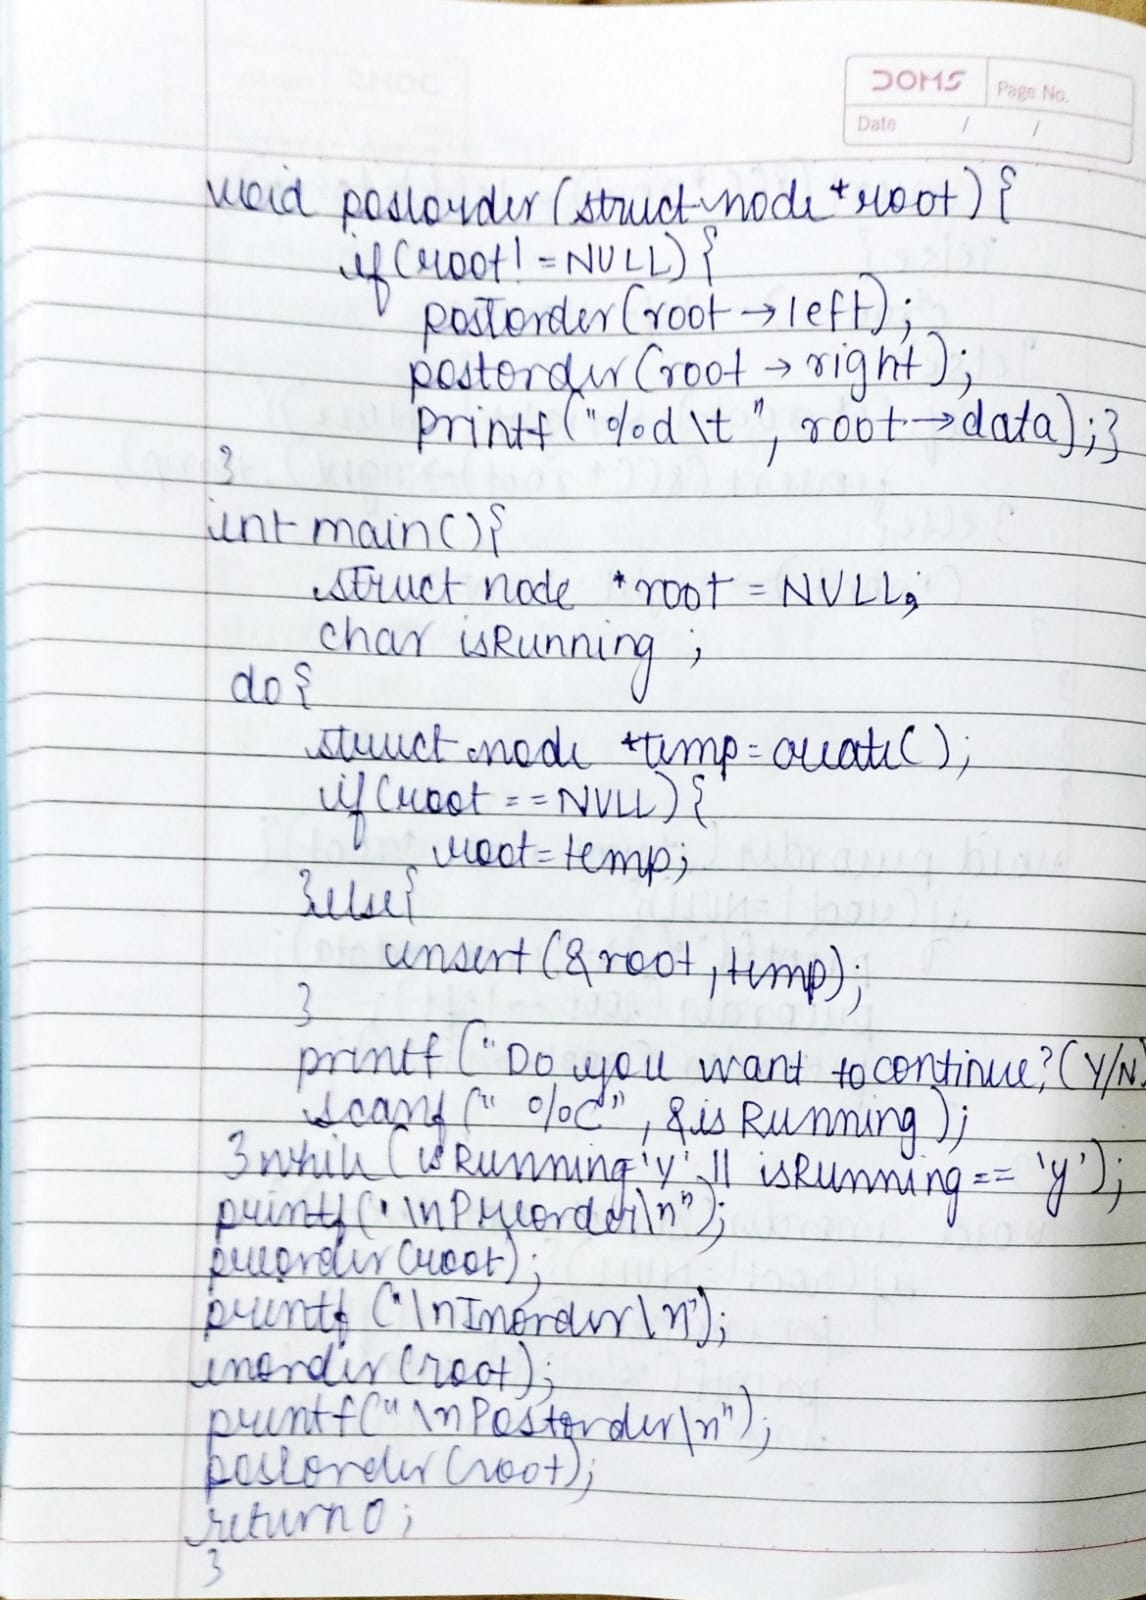 DOMS
Page No.
Date / /
void postorder (struct node *root) {
if (root! = NULL) {
postorder (root → left);
postorder (root → right);
printf ("%d\t", root → data);}
}
int main () {
struct node *root = NULL;
char isRunning ;
do {
struct node *temp = create();
if (root == NULL) {
root = temp;
}else{
insert (&root, temp);
}
printf ("Do you want to continue? (Y/N)
scanf (" %c", &isRunning );
}while (isRunning='y' || isRunning == 'y');
printf (" \nPreorder\n");
preorder (root);
printf (" \nInorder\n");
inorder (root);
printf (" \nPostorder\n");
postorder (root);
return 0;
}